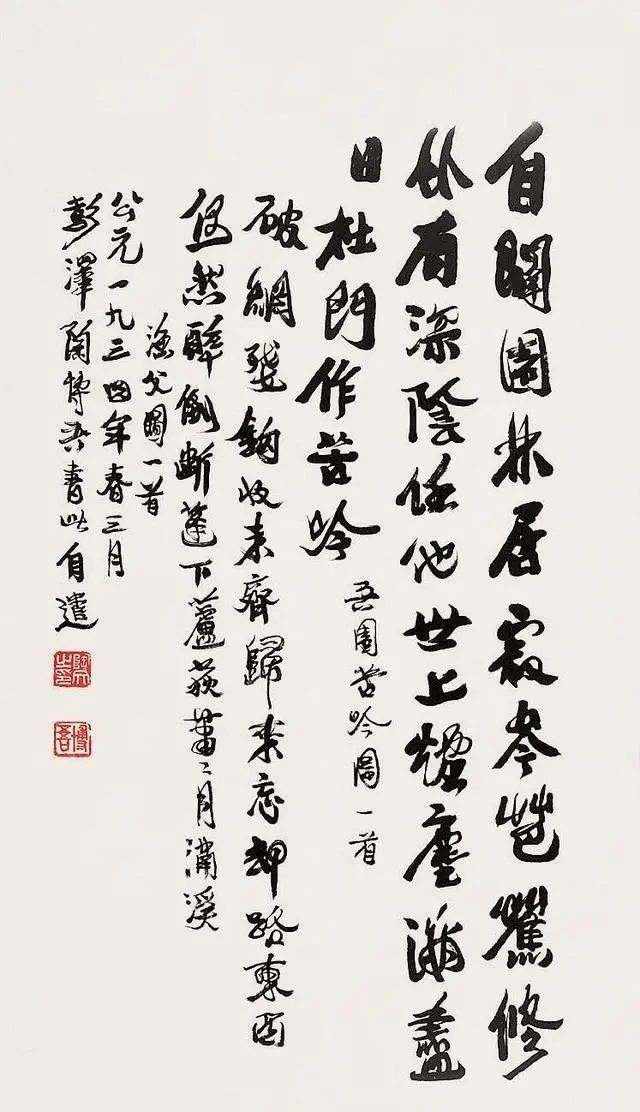 自闢園林居最岑芭蕉修
竹有深陰任他世上煙塵滿盡
日杜門作苦吟
吾園苦吟圖一首
破網殘鉤收未齊歸來忘却路東西
然醉倒斷蓬下蘆荻蕭〻月滿溪
漁父圖一首
公元一九三四年春三月
彭澤陶博吾書此自遣
博吾